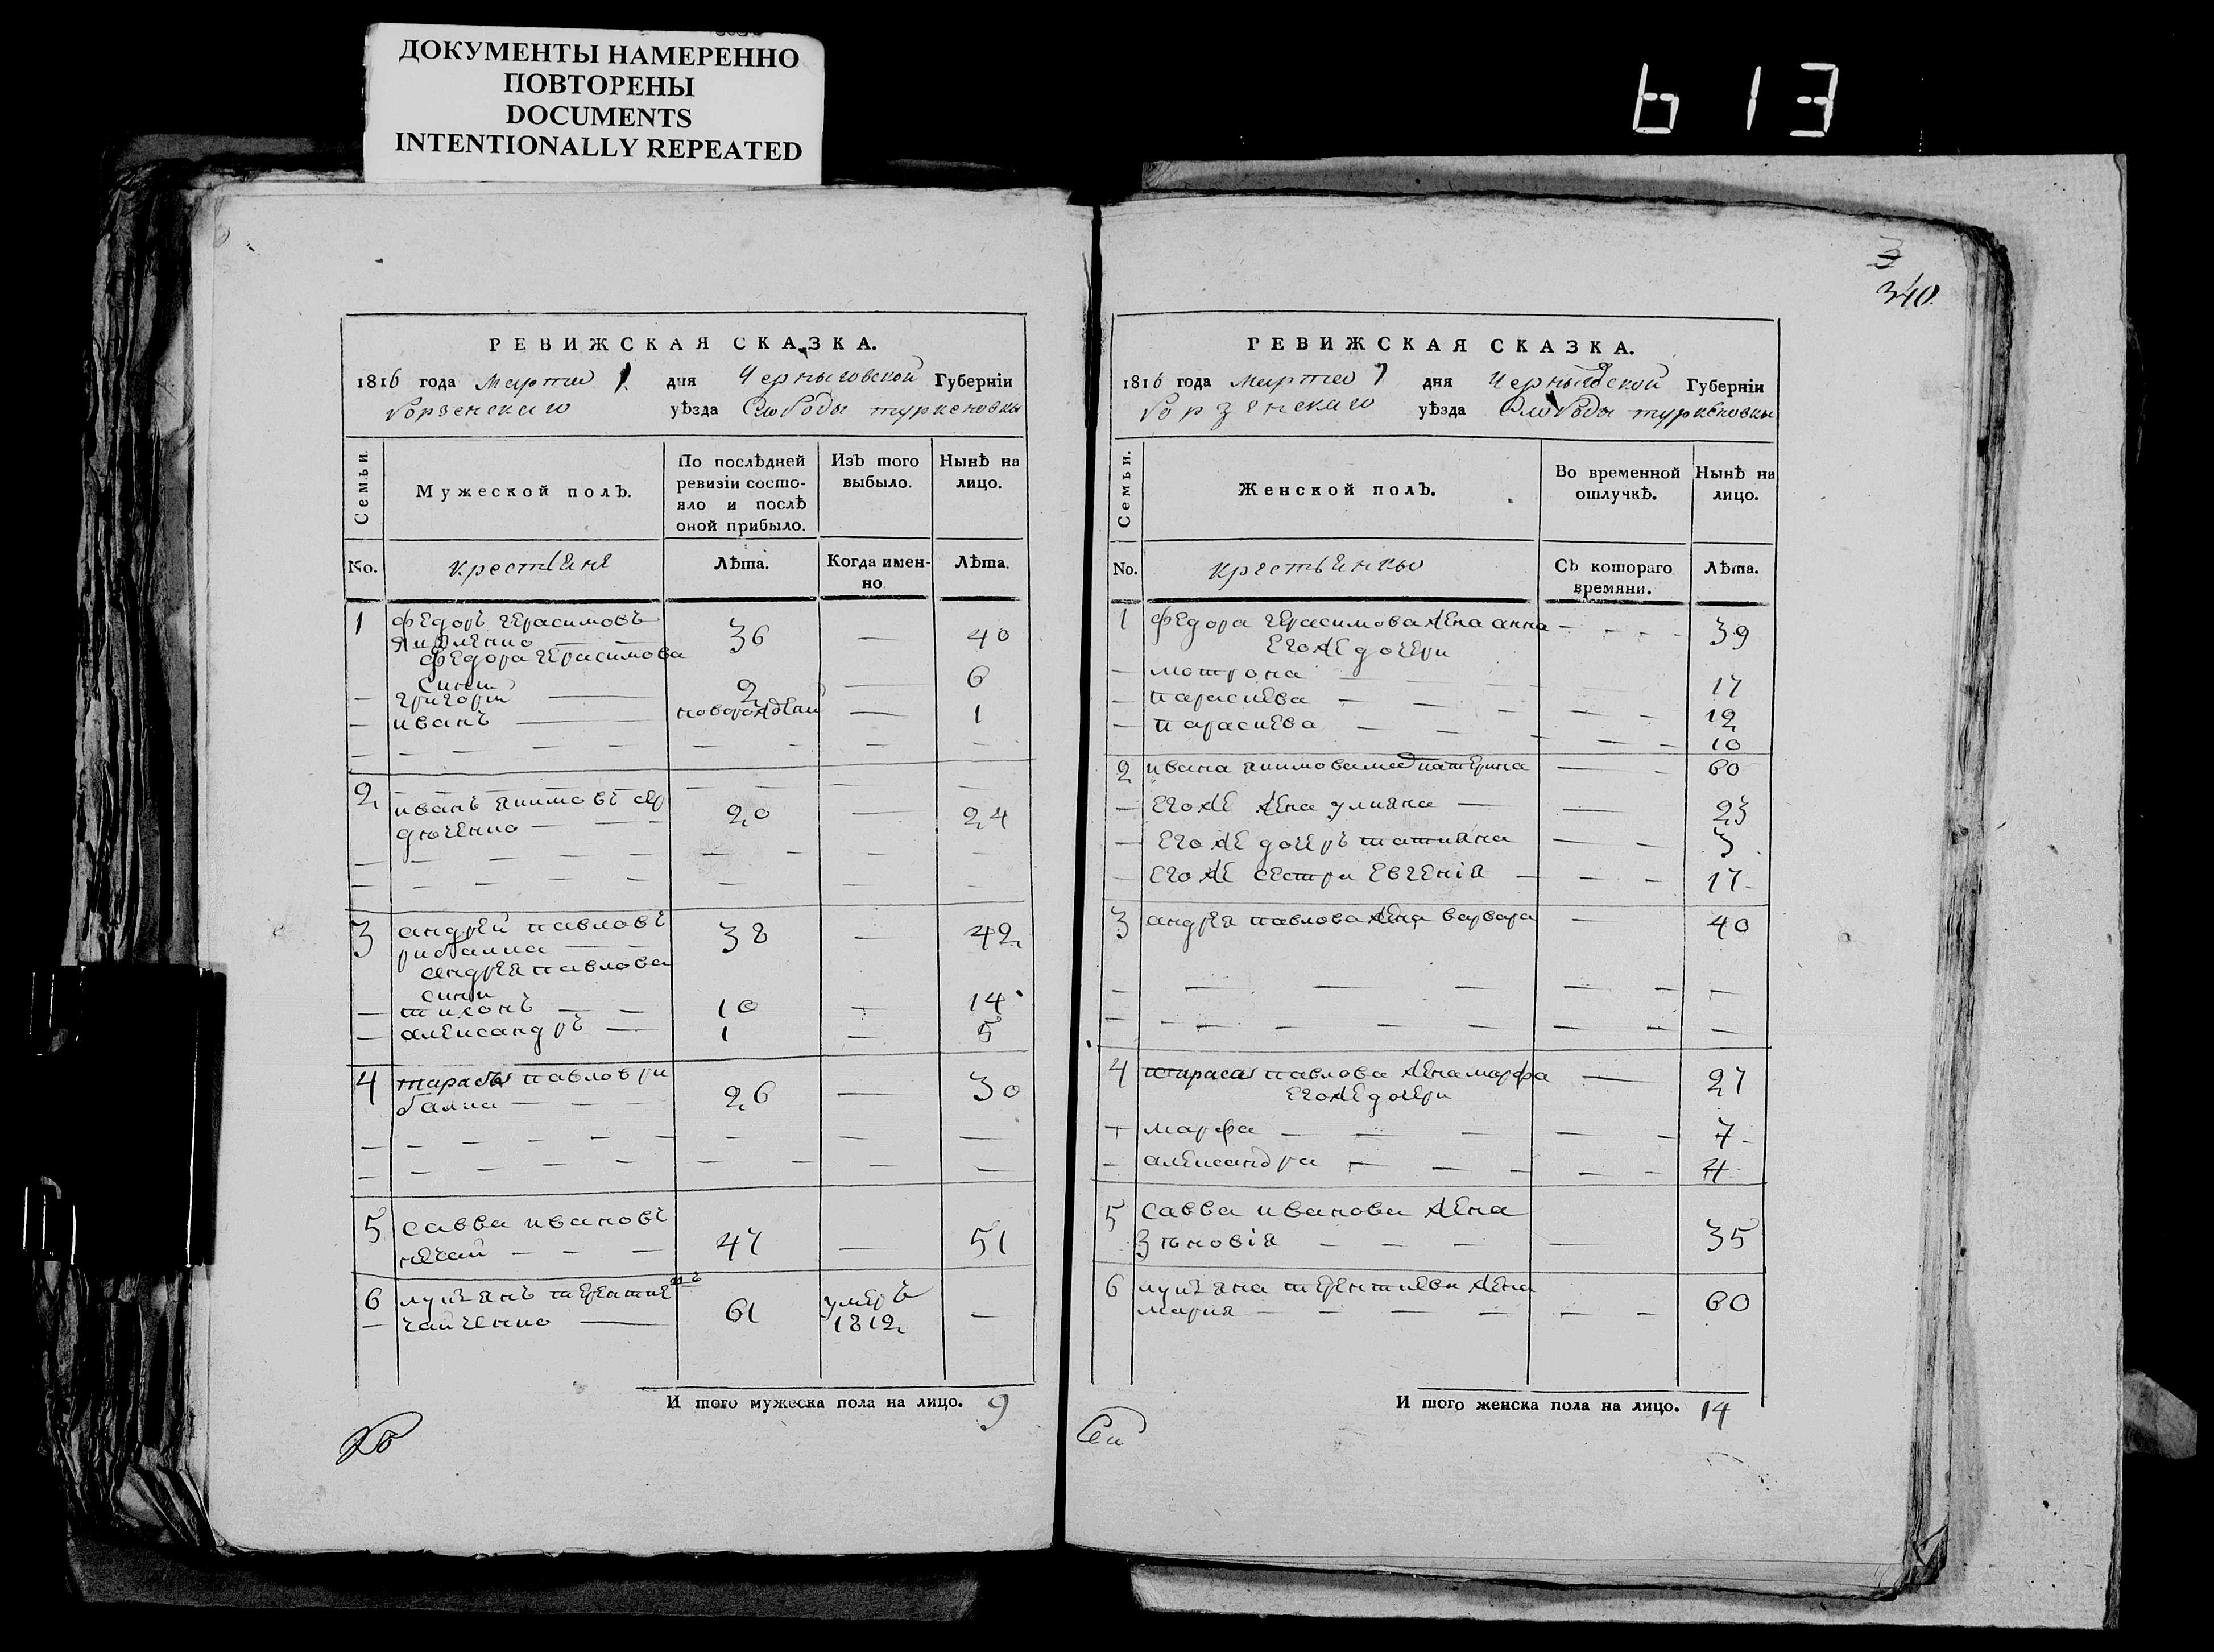 ДОКУМЕНТЫ НАМЕРЕННО
ПОВТОРЕНЫ
DOCUMENTS
INTENTIONALLY REPEATED
613
РЕВИЖСКАЯ СКАЗКА.
1816 года марта 1 дня Черныговской Губернiи
Борзенскаго уѣзда Слободы туркеновки
Семьи.
Мужеской полъ.
По послѣдней ревизiи состояло и послѣ оной прибыло.
Изъ того выбыло.
Нынѣ на лицо.
No. крестьяне Лѣта. Когда именно Лѣта.
1 федоръ герасимовъ
36 — 40
федора герасимова
сини
— григорій 2 — 6
— иванъ — новорожденій — 1
2 иванъ якимовъ сер
дюченко — 20 — 24
3 андрей павловъ
рибалка — 38 — 42
андрея павлова
сини
— тихонъ — 10 — 14
— александръ — 1 — 5
4 тарасъ павловъ ри
балка — 26 — 30
5 савва ивановъ
нечай — 47 — 51
6 лукъянъ терентиевъ
— чайченко — 61 умеръ 1812 —
И того мужеска пола на лицо. 9
3
340
РЕВИЖСКАЯ СКАЗКА.
1816 года марта 7 дня Черныговской Губернiи
Борзенскаго уѣзда Слободы туркеновки
Семьи.
Женской полъ.
Во временной отлучкѣ.
Нынѣ на лицо.
No. крестьянки Съ котораго времяни. Лѣта.
1 федора герасимова жена анна — 39
его же дочери
— мотрона — 17
— параскева — 12
— параскева — 10
2 ивана якимова мать катерина — 60
— его же жена улияна — 23
— его же дочеръ татияна — 3
— его же сестра евгенія — 17
3 андрея павлова жена варвара — 40
4 тараса павлова жена марфа — 27
его же дочери
— марфа — 7
— александра — 4
5 савва иванова жена
зѣновія — 35
6 лукъяна терентиева жена
мария — 60
И того женска пола на лицо. 14